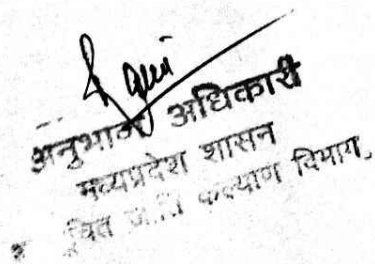 अनुभाग अधिकारी
मध्यप्रदेश शासन
जाति कल्याण विभाग.